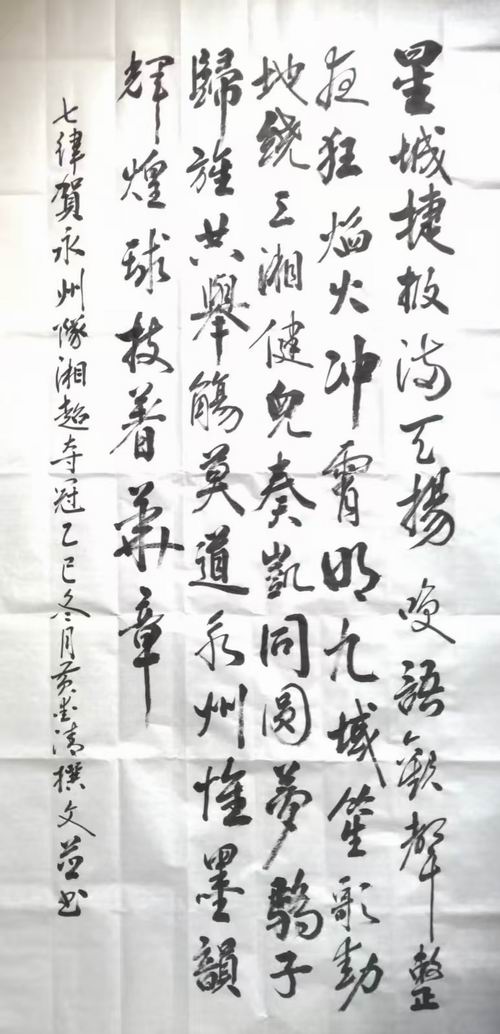 星城捷报满天揚笑語歡聲整
夜狂焰火冲霄明九域笙歌動
地繞三湘健兒奏凱同圆夢驕子
歸旌共舉觴莫道永州惟墨韻
輝煌球技著華章
七律賀永州隊湘超夺冠乙巳冬月黄清撰文並书